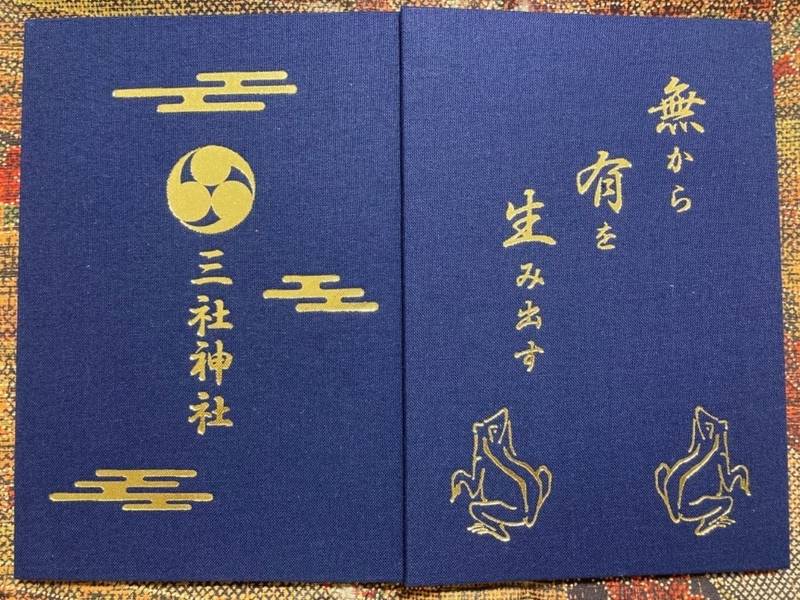 三社神社
無から
有を
生み出す